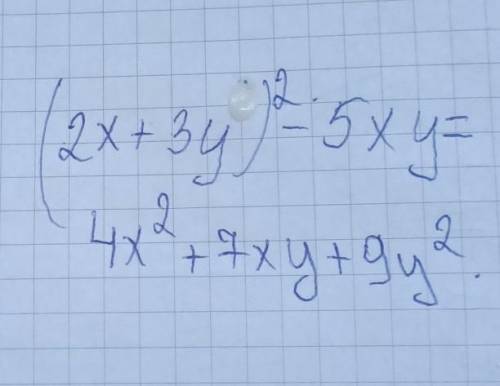 (2x+3y)²-5xy=
4x²+7xy+9y².